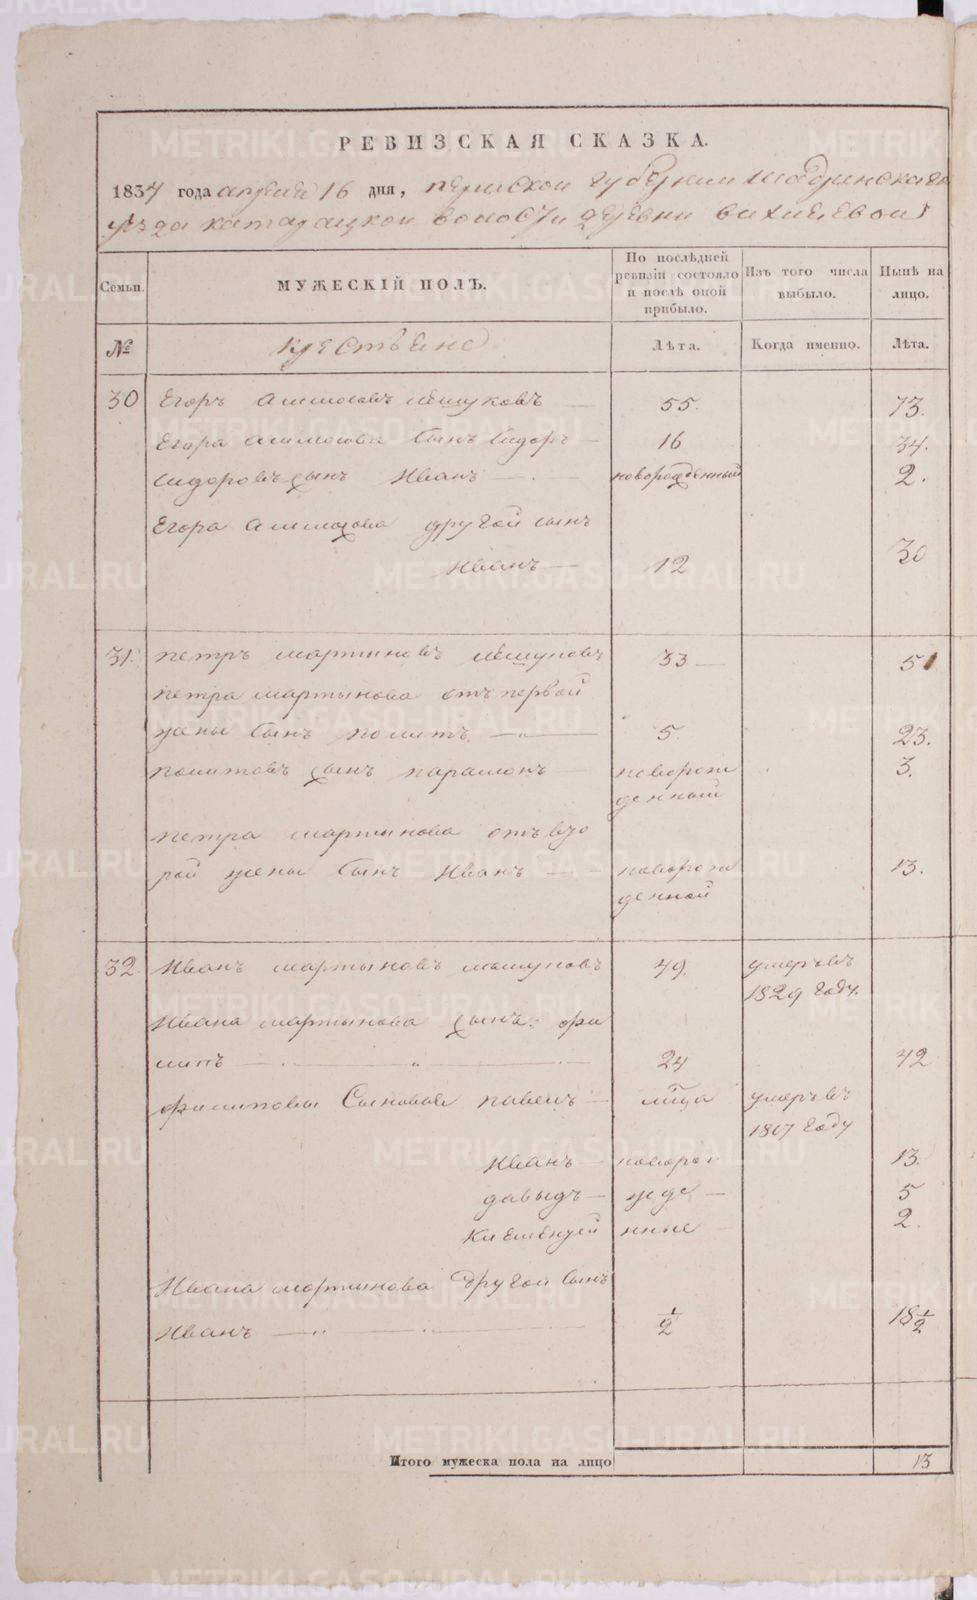 РЕВИЗСКАЯ СКАЗКА.
1834 года апреля 16 дня, пермской губернии шадринскаго
уезда катадацкой волости деревни
Семьи.
МУЖЕСКІЙ ПОЛЪ.
По послѣдней ревизіи состояло и послѣ оной прибыло.
Изъ того числа выбыло.
Нынѣ на лицо.
№
крестьяне
Лѣта.
Когда именно.
Лѣта.
30 Егоръ Алимповъ 55. 73.
Егора сынъ Сидоръ 16 34.
Сидоровъ сынъ Иванъ новорожденный 2.
Егора другой сынъ
Иванъ 12 30
31. петръ мартыновъ 33 51
петра мартынова отъ первой
жены сынъ политъ 5 23.
политовъ сынъ парамонъ новорож 3.
денный
петра мартынова отъ вто
рой жены сынъ Иванъ новорож 13.
денной
32 Иванъ мартыновъ 49. умеръ въ
1829 году.
Ивана мартынова сынъ фи
липъ 24 42
филиповы Сыновья павелъ умеръ въ
1817 году
Иванъ новорож 13.
давыдъ жде 5
Клементей нные 2.
Ивана мартынова другой сынъ
Иванъ 1/2 18 1/2
Итого мужеска пола на лицо 13
METRIKI.GASO-URAL.RU